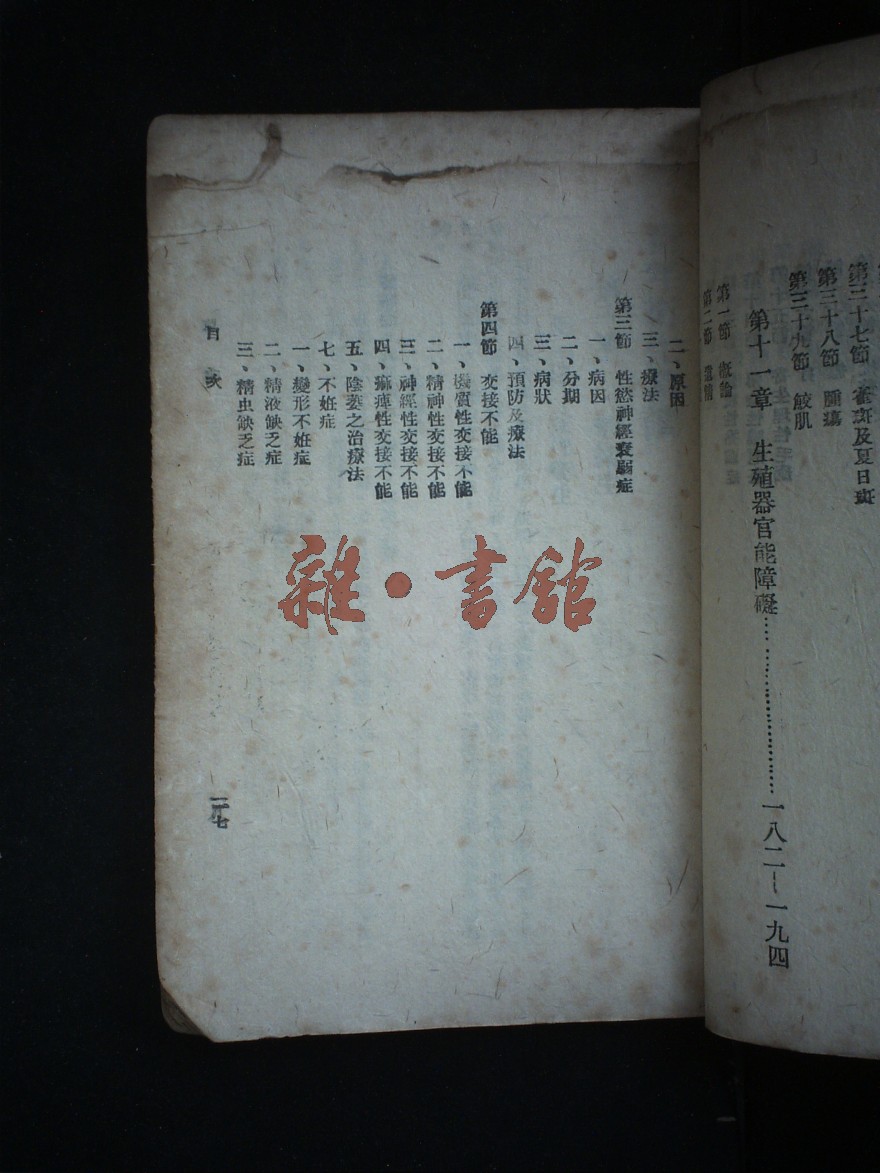 第三十七節 雀斑及夏日斑
第三十八節 腫瘍
第三十九節 鮫肌
第十一章 生殖器官能障礙……一八二—一九四
第一節 概論
第二節 遺精
二、原因
三、療法
第三節 性慾神經衰弱症
一、病因
二、分期
三、病狀
四、預防及療法
第四節 交接不能
一、機質性交接不能
二、精神性交接不能
三、神經性交接不能
四、痲痺性交接不能
五、陰萎之治療法
七、不姙症
一、變形不姙症
二、精液缺乏症
三、精虫缺乏症
目次
一七
雜·書館